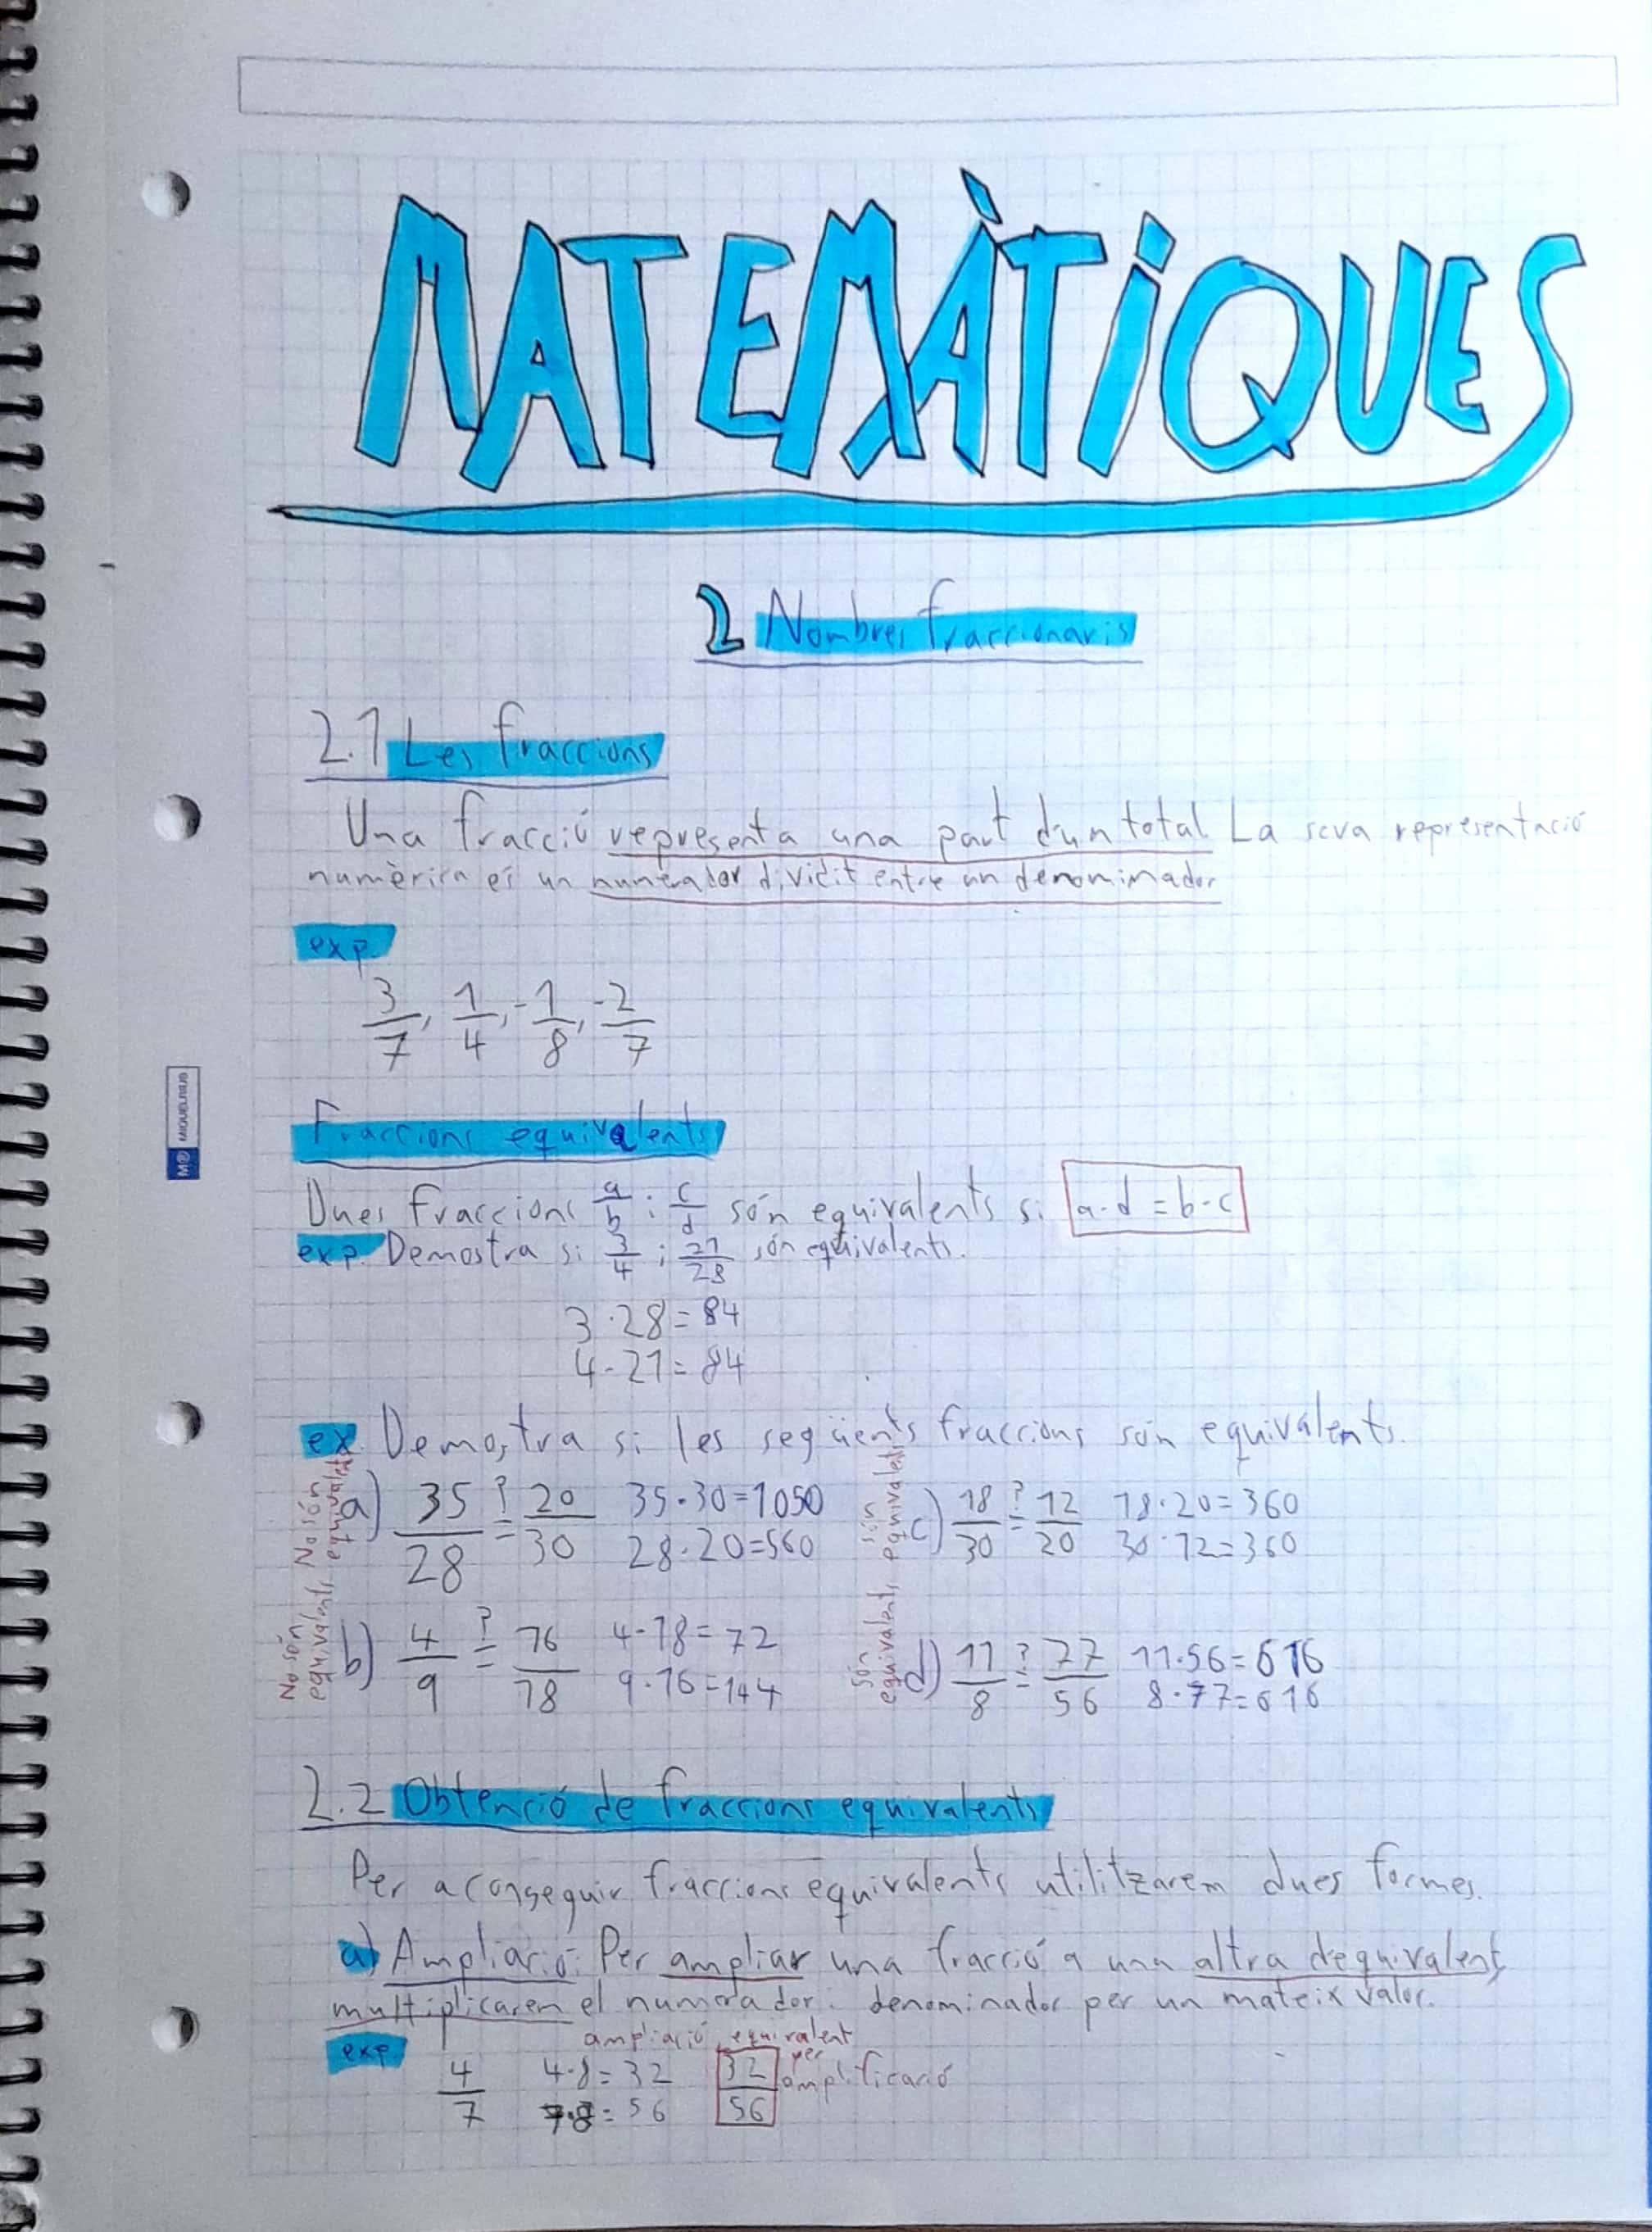 MATEMÀTIQUES
2 Nombres fraccionaris
2.1 Les fraccions
Una fracció representa una part d'un total La seva representació
numèrica és un numerador dividit entre un denominador
exp.
3/7, 1/4, -1/8, -2/7
Fraccions equivalents
Dues fraccions a/b i c/d són equivalents si a·d = b·c
exp. Demostra si 3/4 i 21/28 són equivalents.
3·28=84
4·21=84
ex. Demostra si les següents fraccions són equivalents.
a) 35/28 ?= 20/30 35·30=1050
28·20=560
No són equivalents
c) 18/30 ?= 12/20 18·20=360
30·12=360
són equivalents
b) 4/9 ?= 16/18 4·18=72
9·16=144
No són equivalents
d) 11/8 ?= 77/56 11·56=616
8·77=616
són equivalents
2.2 Obtenció de fraccions equivalents
Per aconseguir fraccions equivalents utilitzarem dues formes.
a) Ampliació: Per ampliar una fracció a una altra d'equivalent,
multiplicarem el numerador i denominador per un mateix valor.
exp.
ampliació equivalent per amplificació
4/7 4·8=32 32/56
7·8=56
M® MIQUELRIUS